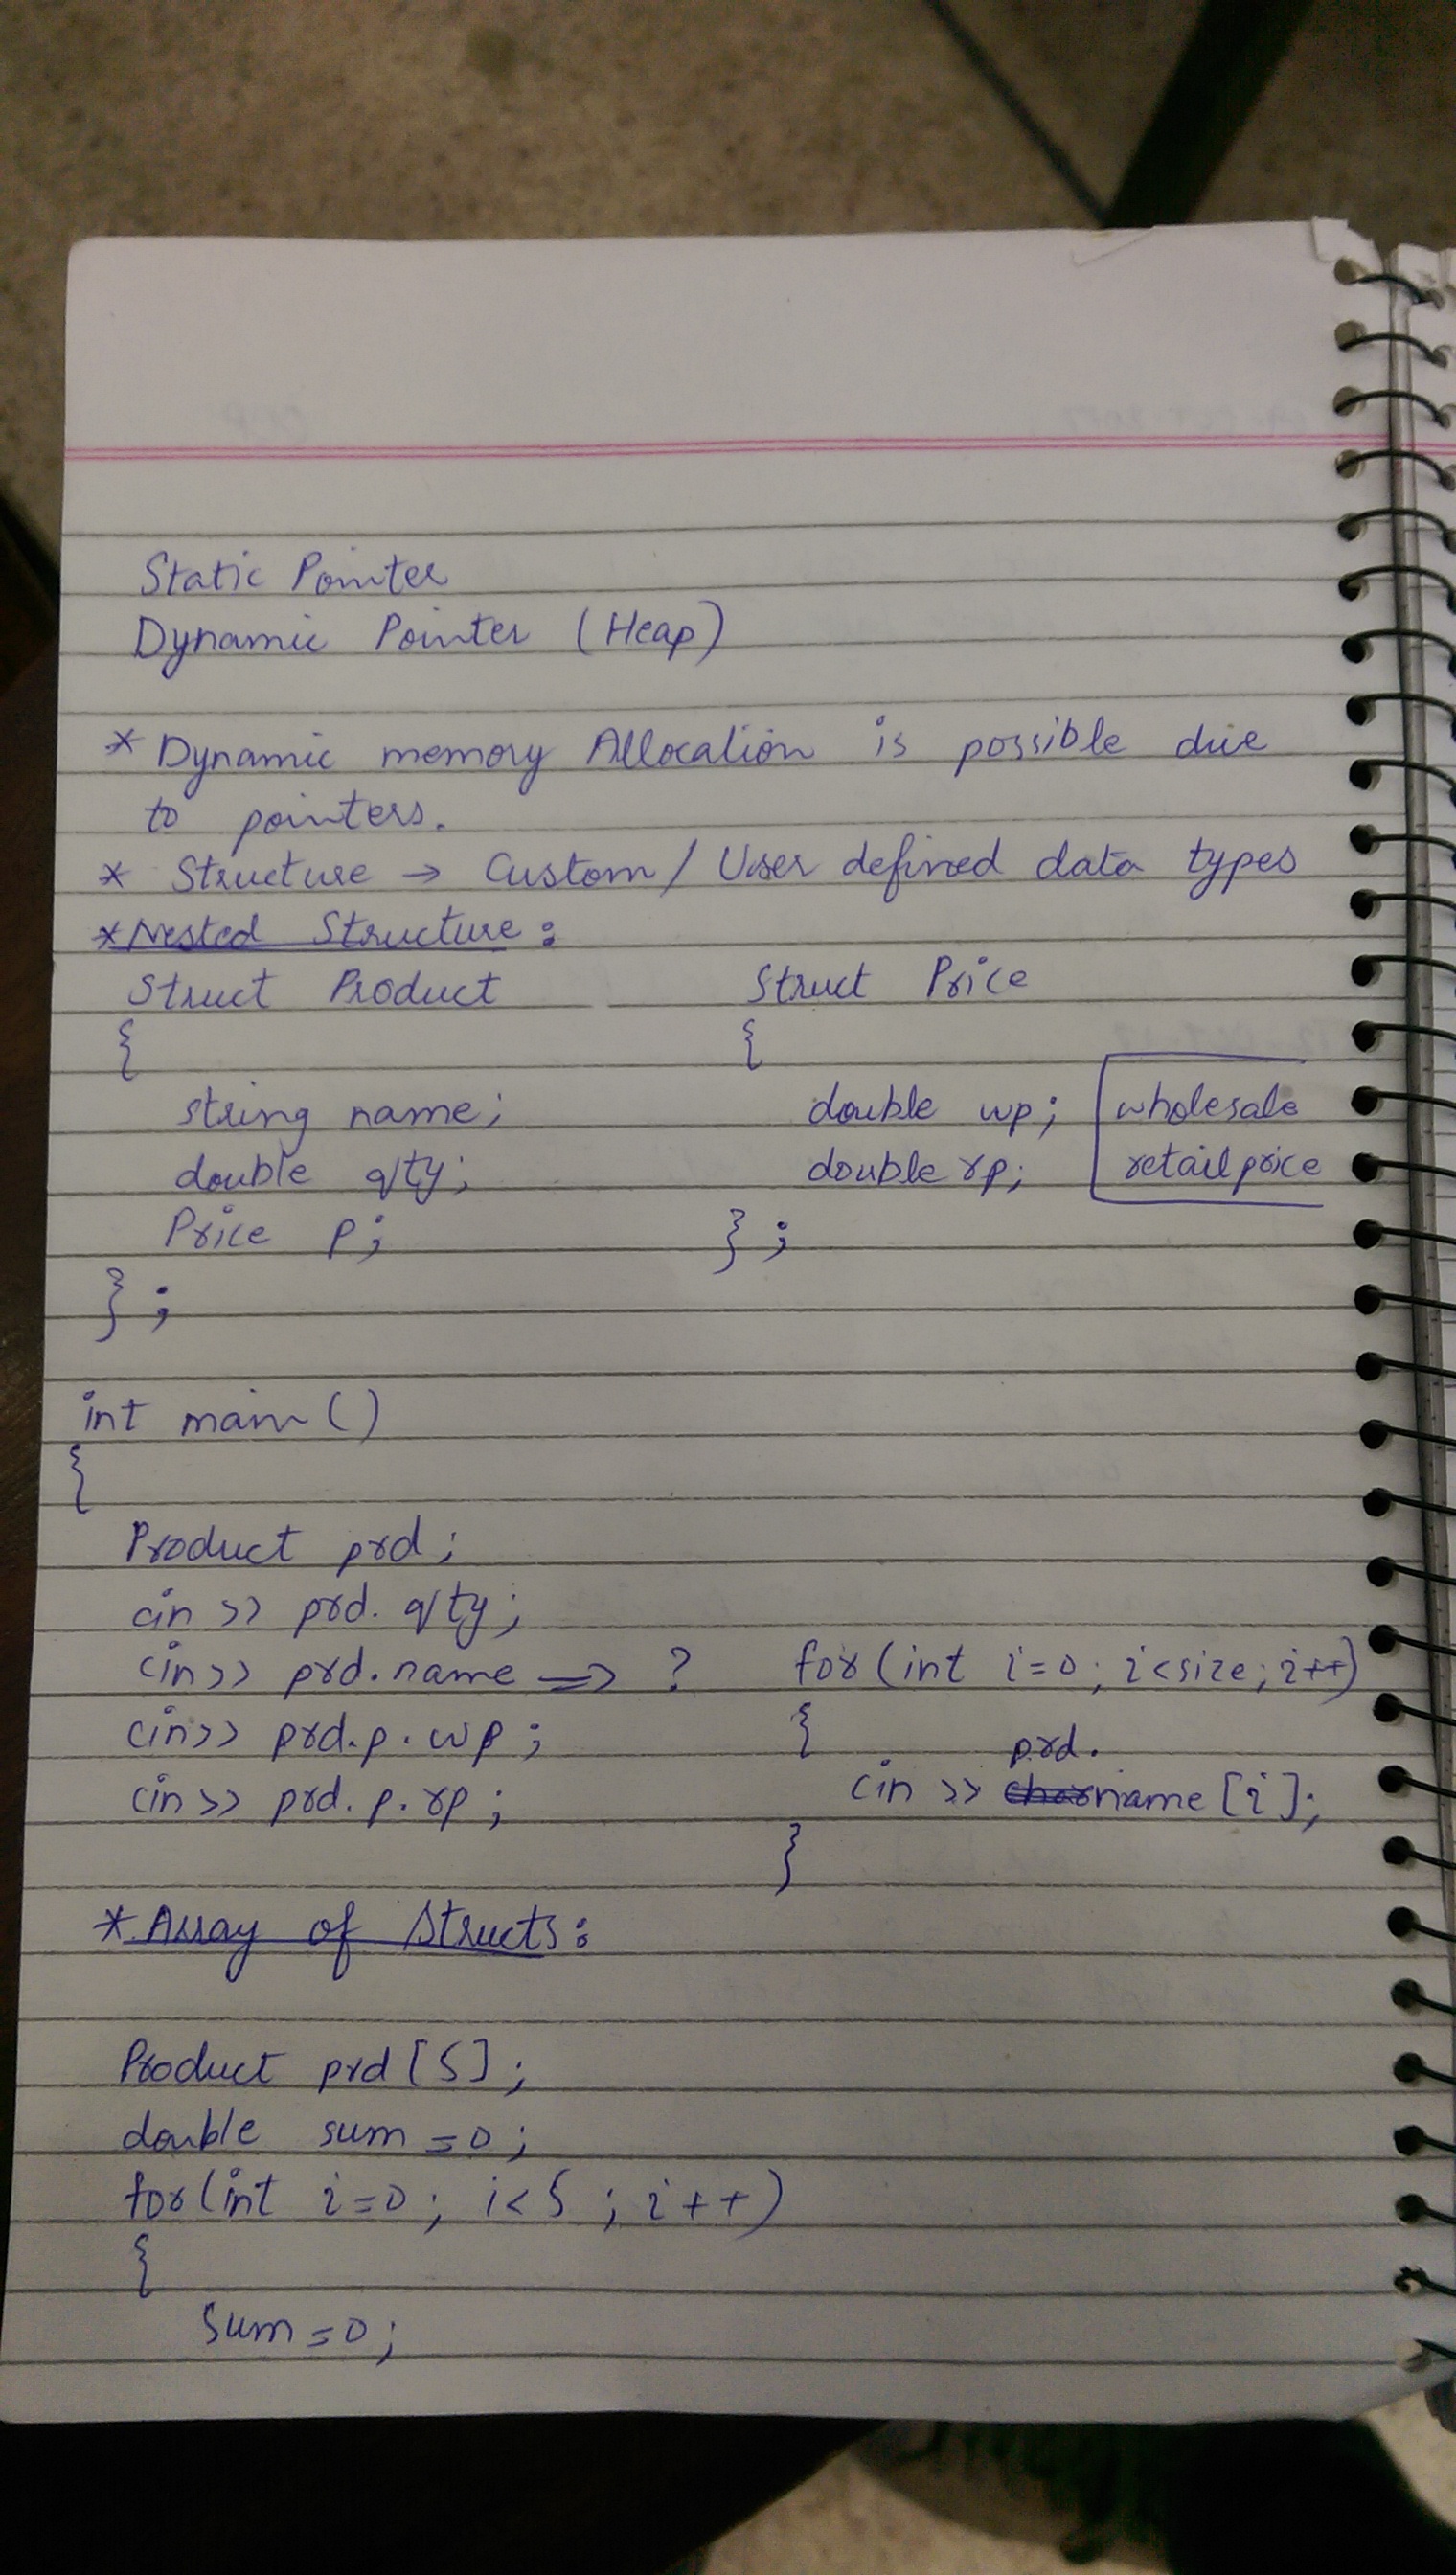 Static Pointer
Dynamic Pointer (Heap)
* Dynamic memory Allocation is possible due
to pointers.
* Structure → Custom / User defined data types
* Nested Structure :
Struct Product
{
string name;
double qty;
Price p;
};
Struct Price
{
double wp; wholesale
double rp; retail price
};
int main ()
{
Product prd;
cin >> prd. qty;
cin >> prd.name => ?
cin >> prd.p.wp;
cin >> prd.p.rp;
for (int i=0; i<size; i++)
{
prd.
cin >> name [i];
}
* Array of Structs:
Product prd [5];
double sum = 0;
for (int i=0; i<5; i++)
{
Sum = 0;